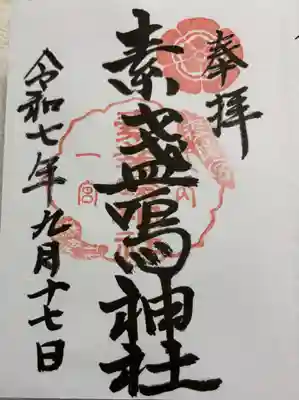 奉拝
素盞嗚神社
令和七年九月十七日
一宮